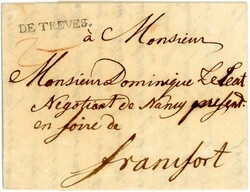 DE TREVES.
à Monsieur
Monsieur Dominique Le
Negotiant de Nancy present
en foire de
francfort